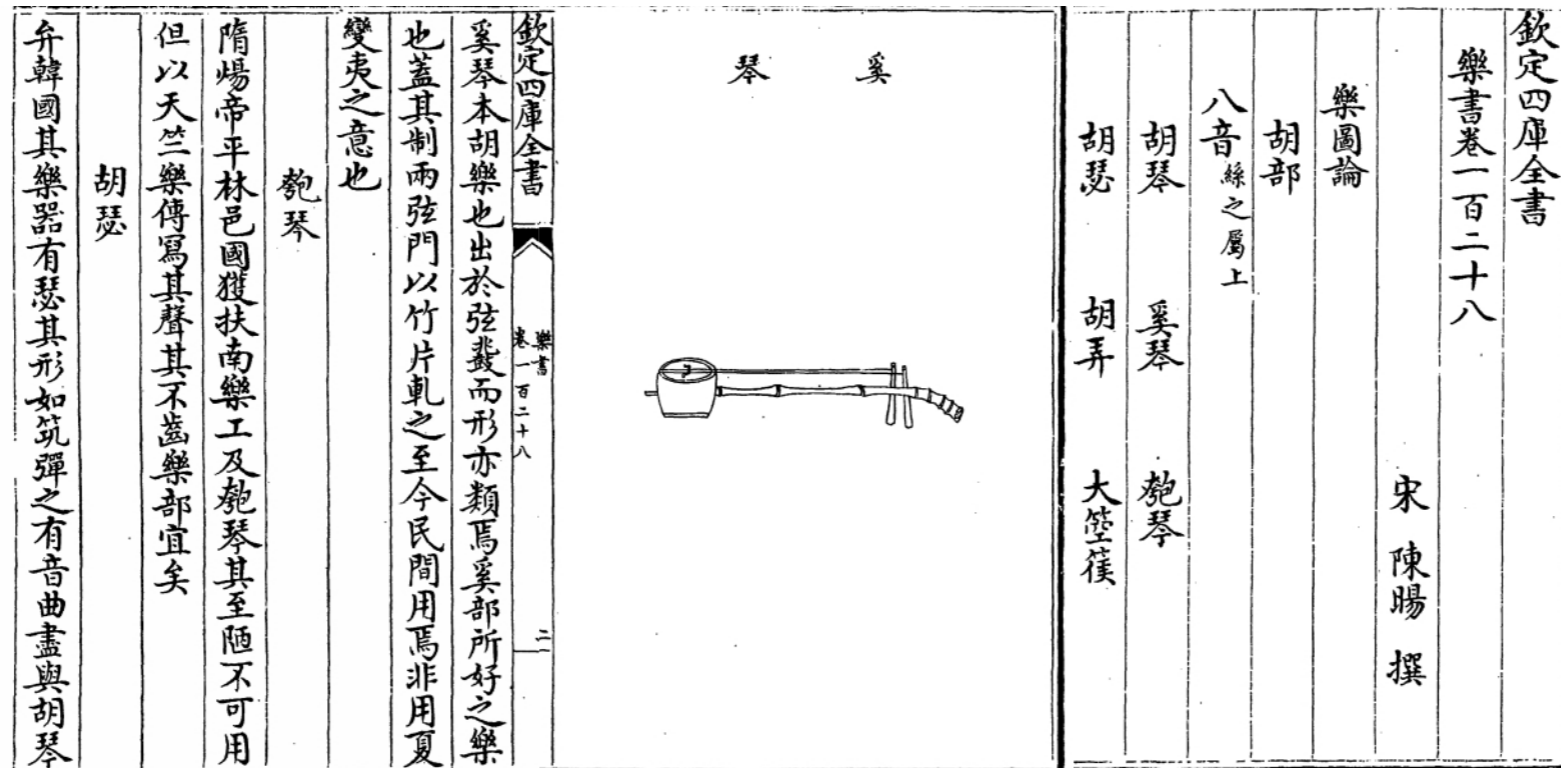 欽定四庫全書
樂書卷一百二十八
宋 陳暘 撰
樂圖論
胡部
八音絲之屬上
胡琴 奚琴 匏琴
胡瑟 胡弄 大箜篌
奚琴
欽定四庫全書
樂書
卷一百二十八
二
奚琴本胡樂也出於弦鼗而形亦類焉奚部所好之樂
也蓋其制兩弦間以竹片軋之至今民間用焉非用夏
變夷之意也
匏琴
隋煬帝平林邑國獲扶南樂工及匏琴其至陋不可用
但以天竺樂傳寫其聲其不齒樂部宜矣
胡瑟
弁韓國其樂器有瑟其形如筑彈之有音曲盡與胡琴